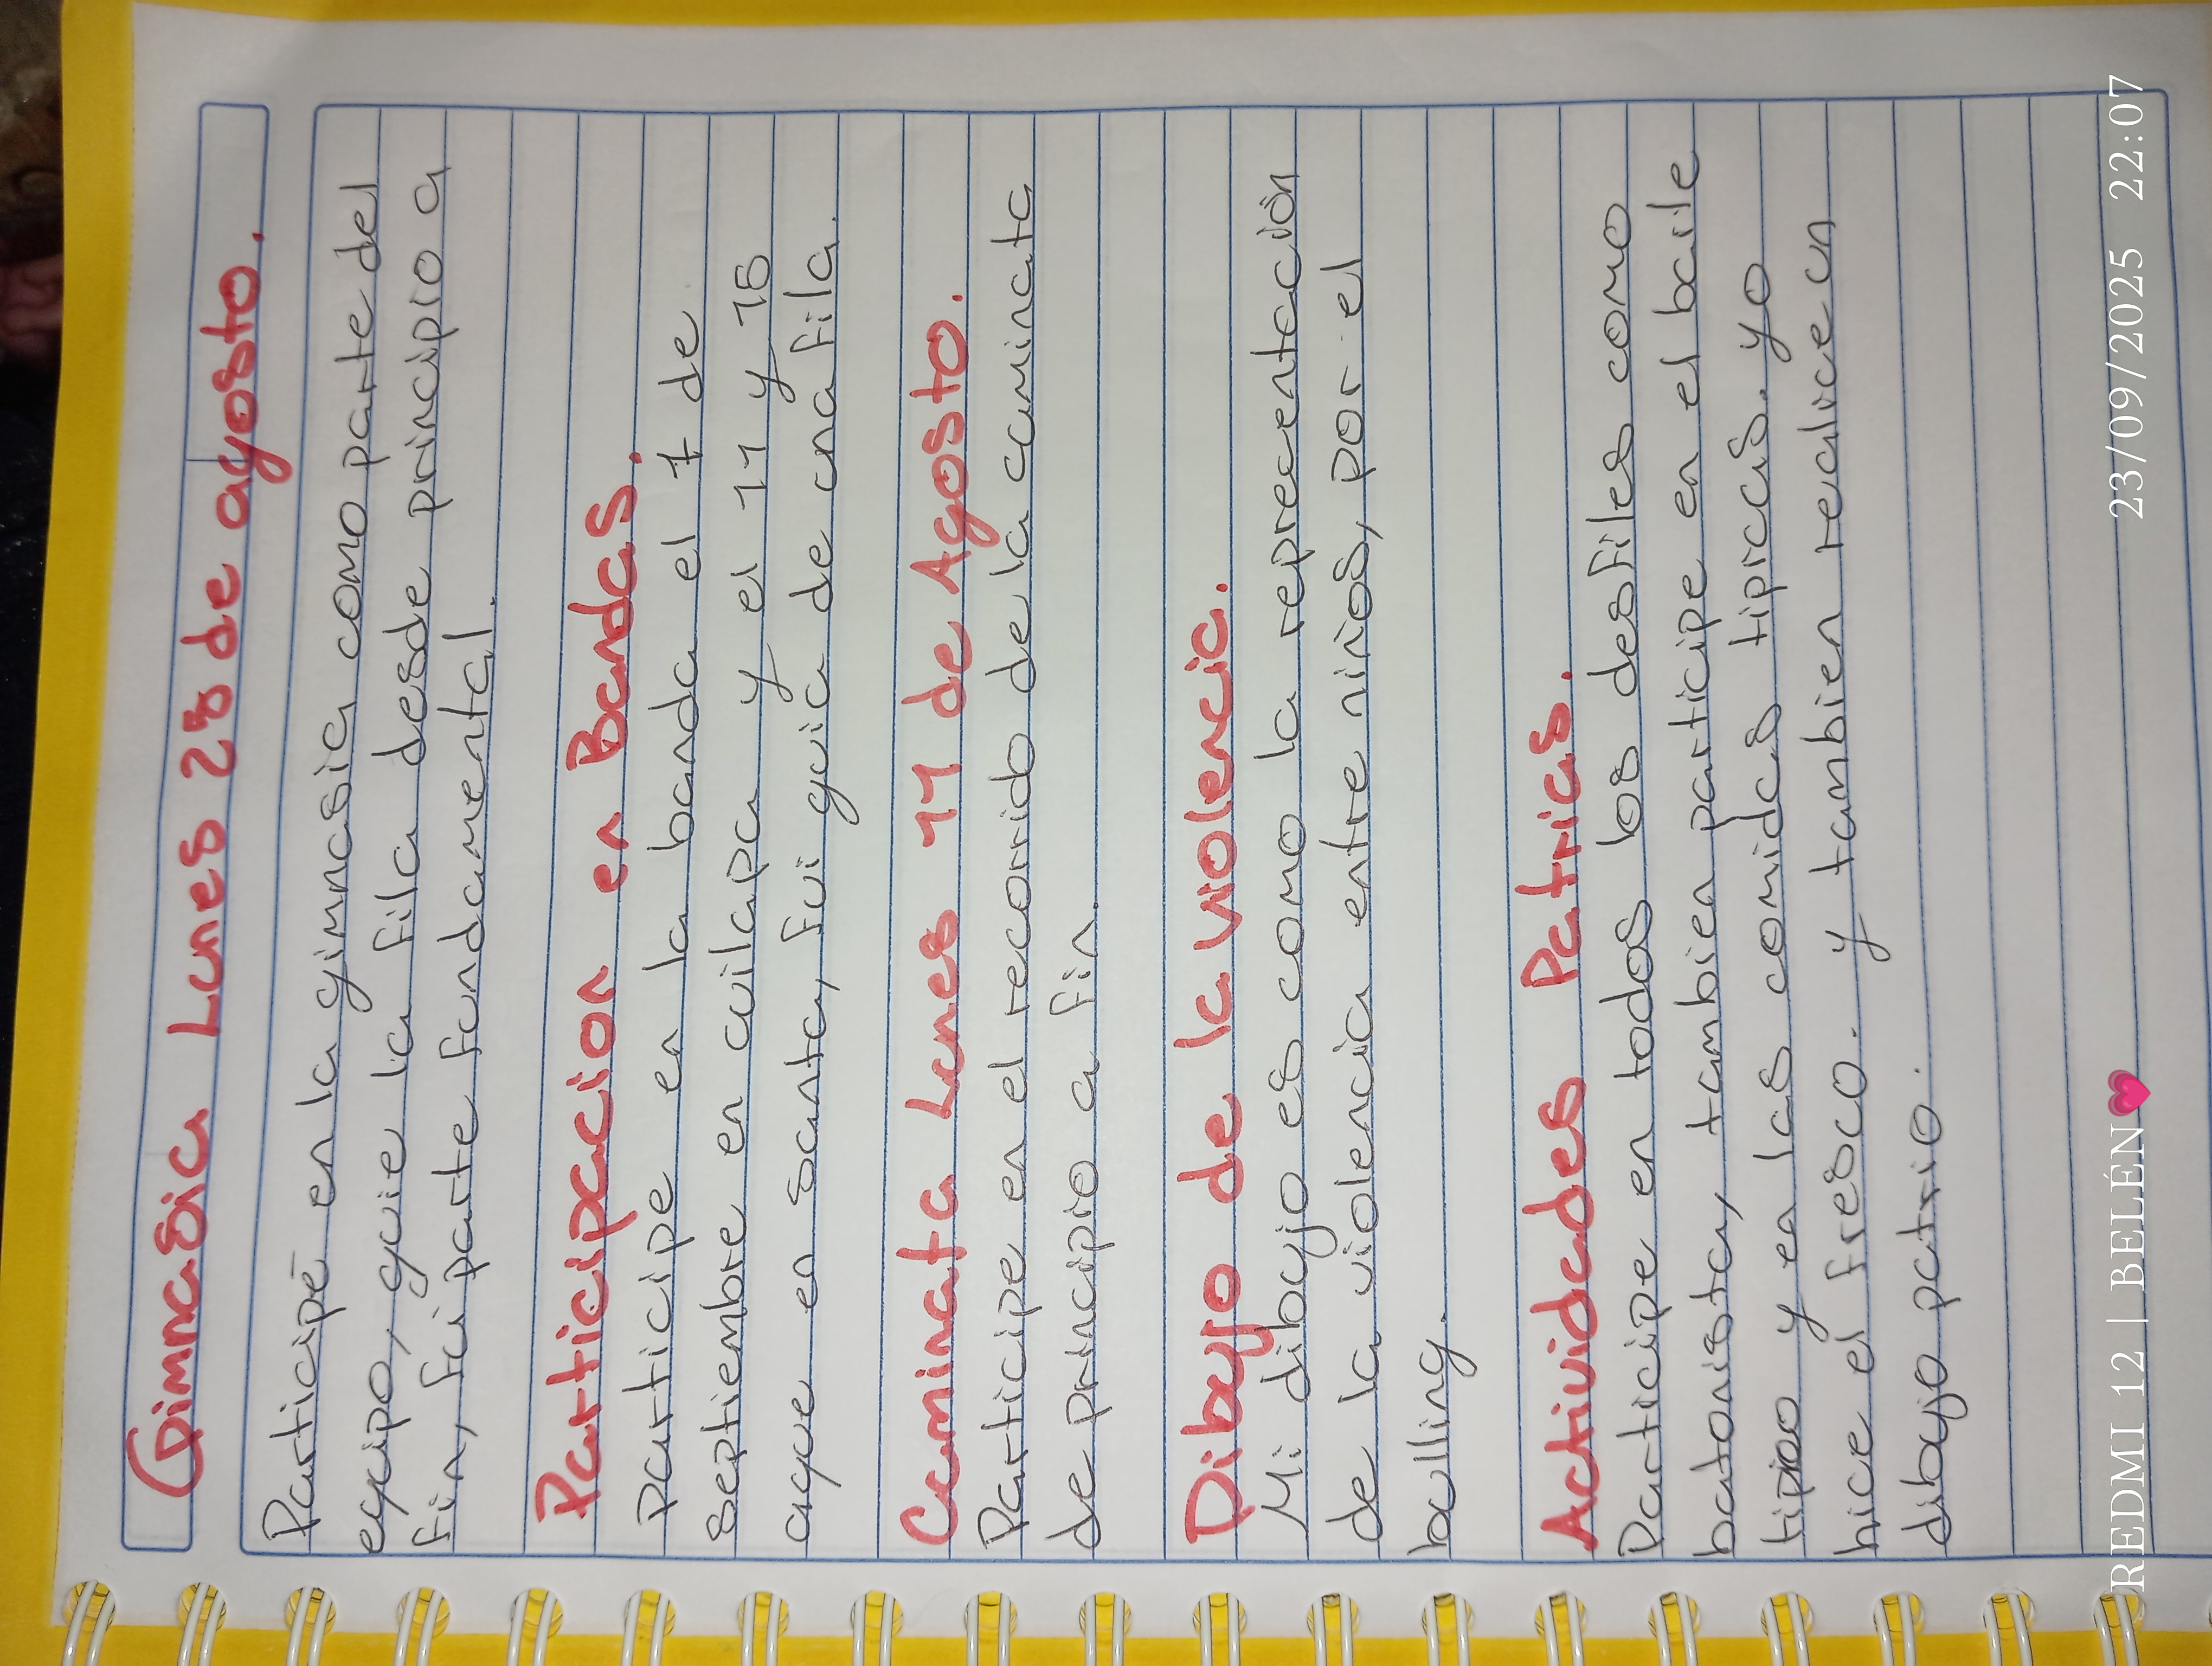 Gimnasia Lunes 28 de agosto.
Participé en la gimnasia como parte del
equipo, guie la fila desde principio a
fin, fui parte fundamental.
Participacion en Bandas.
Participe en la banda el 1 de
septiembre en cuilapa y el 11 y 15
aque en santa, fui guia de una fila.
Caminata Lunes 11 de Agosto.
Participe en el recorrido de la caminata
de principio a fin.
Dibujo de la violencia.
Mi dibujo es como la reprecentación
de la violencia entre niños, por el
bulling.
Actividades Patrias.
Participe en todos los desfiles como
batonista, tambien participe en el baile
tipico y en las comidas tipicas. yo
hice el fresco. y tambien realice un
dibujo patrio.
REDMI 12 | BELÉN💗 23/09/2025 22:07